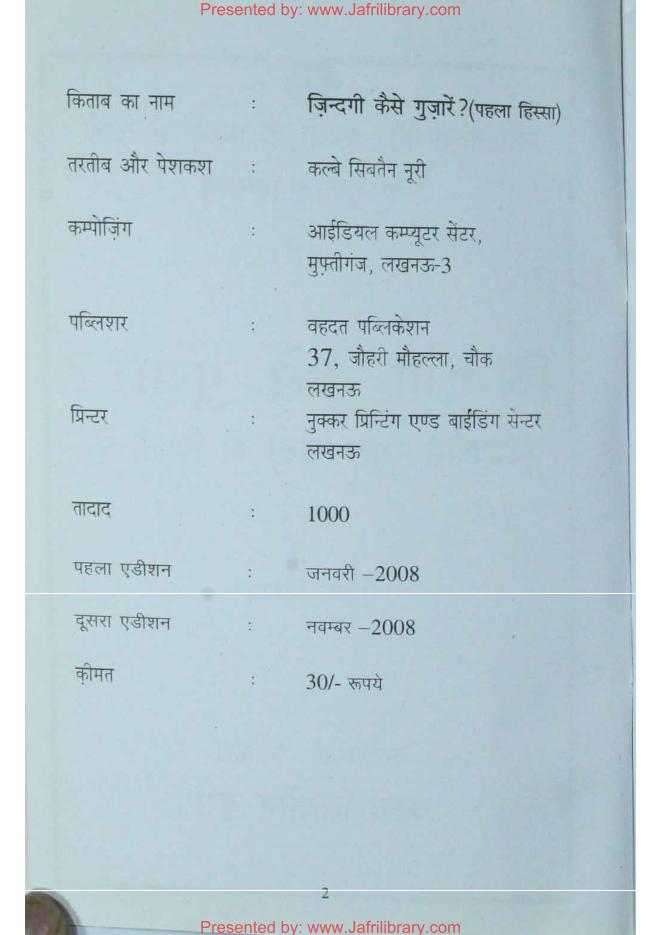 Presented by: www.Jafrilibrary.com
किताब का नाम : ज़िन्दगी कैसे गुज़ारें?(पहला हिस्सा)
तरतीब और पेशकश : कल्बे सिबतैन नूरी
कम्पोज़िंग : आईडियल कम्प्यूटर सेंटर,
मुफ़्तीगंज, लखनऊ-3
पब्लिशर : वहदत पब्लिकेशन
37, जौहरी मौहल्ला, चौक
लखनऊ
प्रिन्टर : नुक्कर प्रिन्टिंग एण्ड बाईंडिंग सेन्टर
लखनऊ
तादाद : 1000
पहला एडीशन : जनवरी –2008
दूसरा एडीशन : नवम्बर –2008
क़ीमत : 30/- रूपये
2
Presented by: www.Jafrilibrary.com